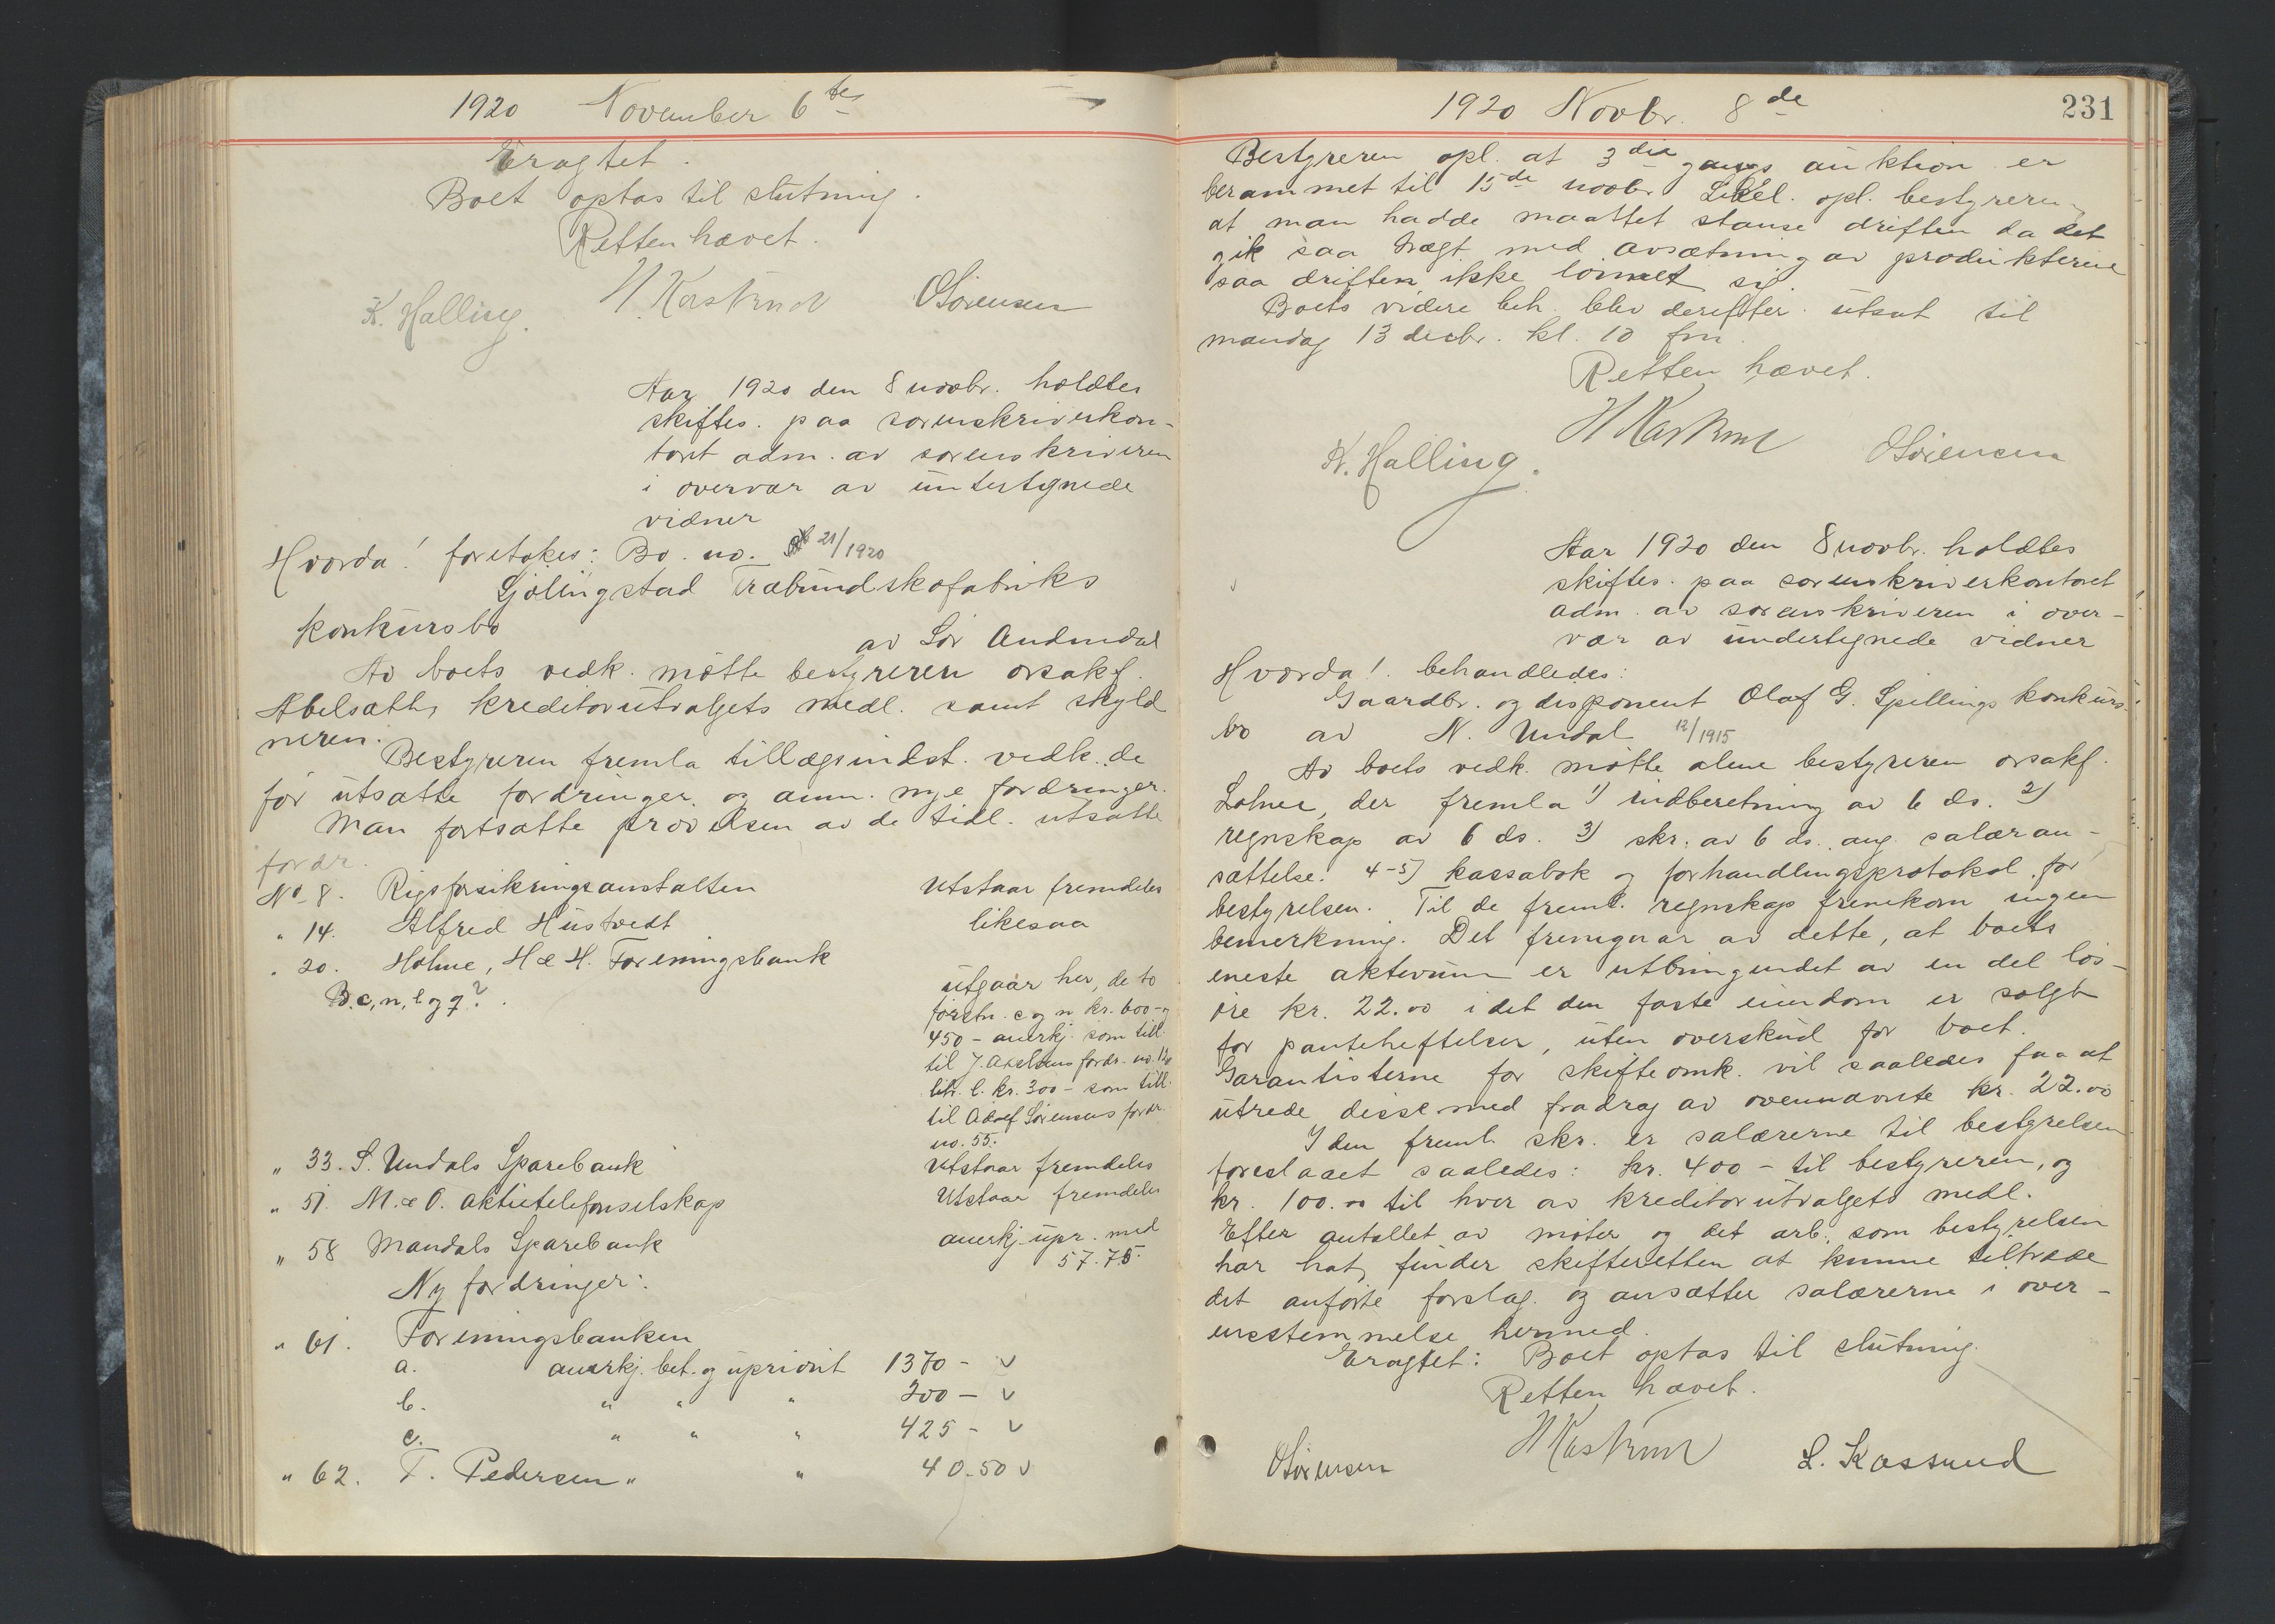 1920 November 6te
Eragtet.
Boet optas til slutning.
Retten hævet.
K. Halling. H. Kastrud OSörensen
Aar 1920 den 8 novbr. holdtes
skiftes. paa sorenskriverkon-
toret adm. av sorenskriveren
i overvær av undertegnede
vidner
Hvorda! foretokes: Bo. no. 21/1920
Sjölingstad Træbundskofabriks
konkursbo
av Sör Audnedal
Av boets vedk. mötte bestyreren orsakf.
Abelsæth, kreditorutvalgets medl. samt skyld
neren.
Bestyreren fremla tillægsindst. vedk. de
för utsatte fordringer og anm. nye fordringer.
Man fortsatte prövelsen av de tidl. utsatte
fordr.
No 8. Rigsforsikringsanstalten Utstaar fremdeles
" 14. Alfred Hustvedt likesaa
" 20. Holme, H & H. Foreningsbank
B. c, n, l og q? utgaar her, de to
förstn. c og n kr. 600 - og
450 - anerkj. som till.
til J. Axelsens fordr. no.
litr. l. kr. 300 - som till.
til Adolf Sörensens fordr.
no. 55.
" 33. S. Undals Sparebank Utstaar fremdeles
" 51. M. & O. aktietelefonselskap Utstaar fremdeles
" 58 Mandals Sparebank anerkj. upr. med
57.75.
Ny fordringer:
" 61. Foreningsbanken
a. anerkj. bet. og upriorit 1370 - v
b. " " " 200 - v
c. " " " 425 - v
" 62. T. Pedersen " " 40.50 v
1920 Novbr. 8de 231
Bestyreren opl. at 3die gangs auktion er
berammet til 15de novbr. Likel. opl. bestyreren
at man hadde maattet stanse driften da det
gik saa trægt med avsætning av produkterne
saa driften ikke lönnet sig.
Boets videre beh. blev derefter utsat til
mandag 13 decbr. kl. 10 fm.
Retten hævet.
K. Halling. H Kastrud OSörensen
Aar 1920 den 8 novbr. holdtes
skiftes. paa sorenskriverkontoret
adm. av sorenskriveren i over-
vær av undertegnede vidner
Hvorda! behandledes:
Gaardbr. og disponent Olaf G. Spillings konkurs-
bo av N. Undal 12/1915
Av boets vedk. mötte alene bestyreren orsakf.
Lohne, der fremla 1) indberetning av 6 ds. 2)
regnskap av 6 ds. 3) skr. av 6 ds. ang. salæran-
sættelse. 4-5) kassabok og forhandlingsprotokol for
bestyrelsen. Til de freml. regnskap fremkom ingen
bemerkning. Det fremgaar av dette, at boets
eneste aktivum er utbringendet av en del lös-
öre kr. 22.00 idet den faste eiendom er solgt
for panteheftelser, uten overskud for boet.
Garantisterne for skifteomk. vil saaledes faa at
utrede disse med fradrag av ovennævnte kr. 22.00
I den freml. skr. er salærerne til bestyrelsen
foreslaaet saaledes: kr. 400 - til bestyreren, og
kr. 100.00 til hver av kreditorutvalgets medl.
Efter antallet av möter og det arb. som bestyrelsen
har hat, finder skifteretten at kunne tiltræde
det anförte forslag og ansætter salærerne i over-
ensstemmelse hermed.
Eragtet: Boet optas til slutning.
Retten hævet.
OSörensen H Kastrud L. Kossund